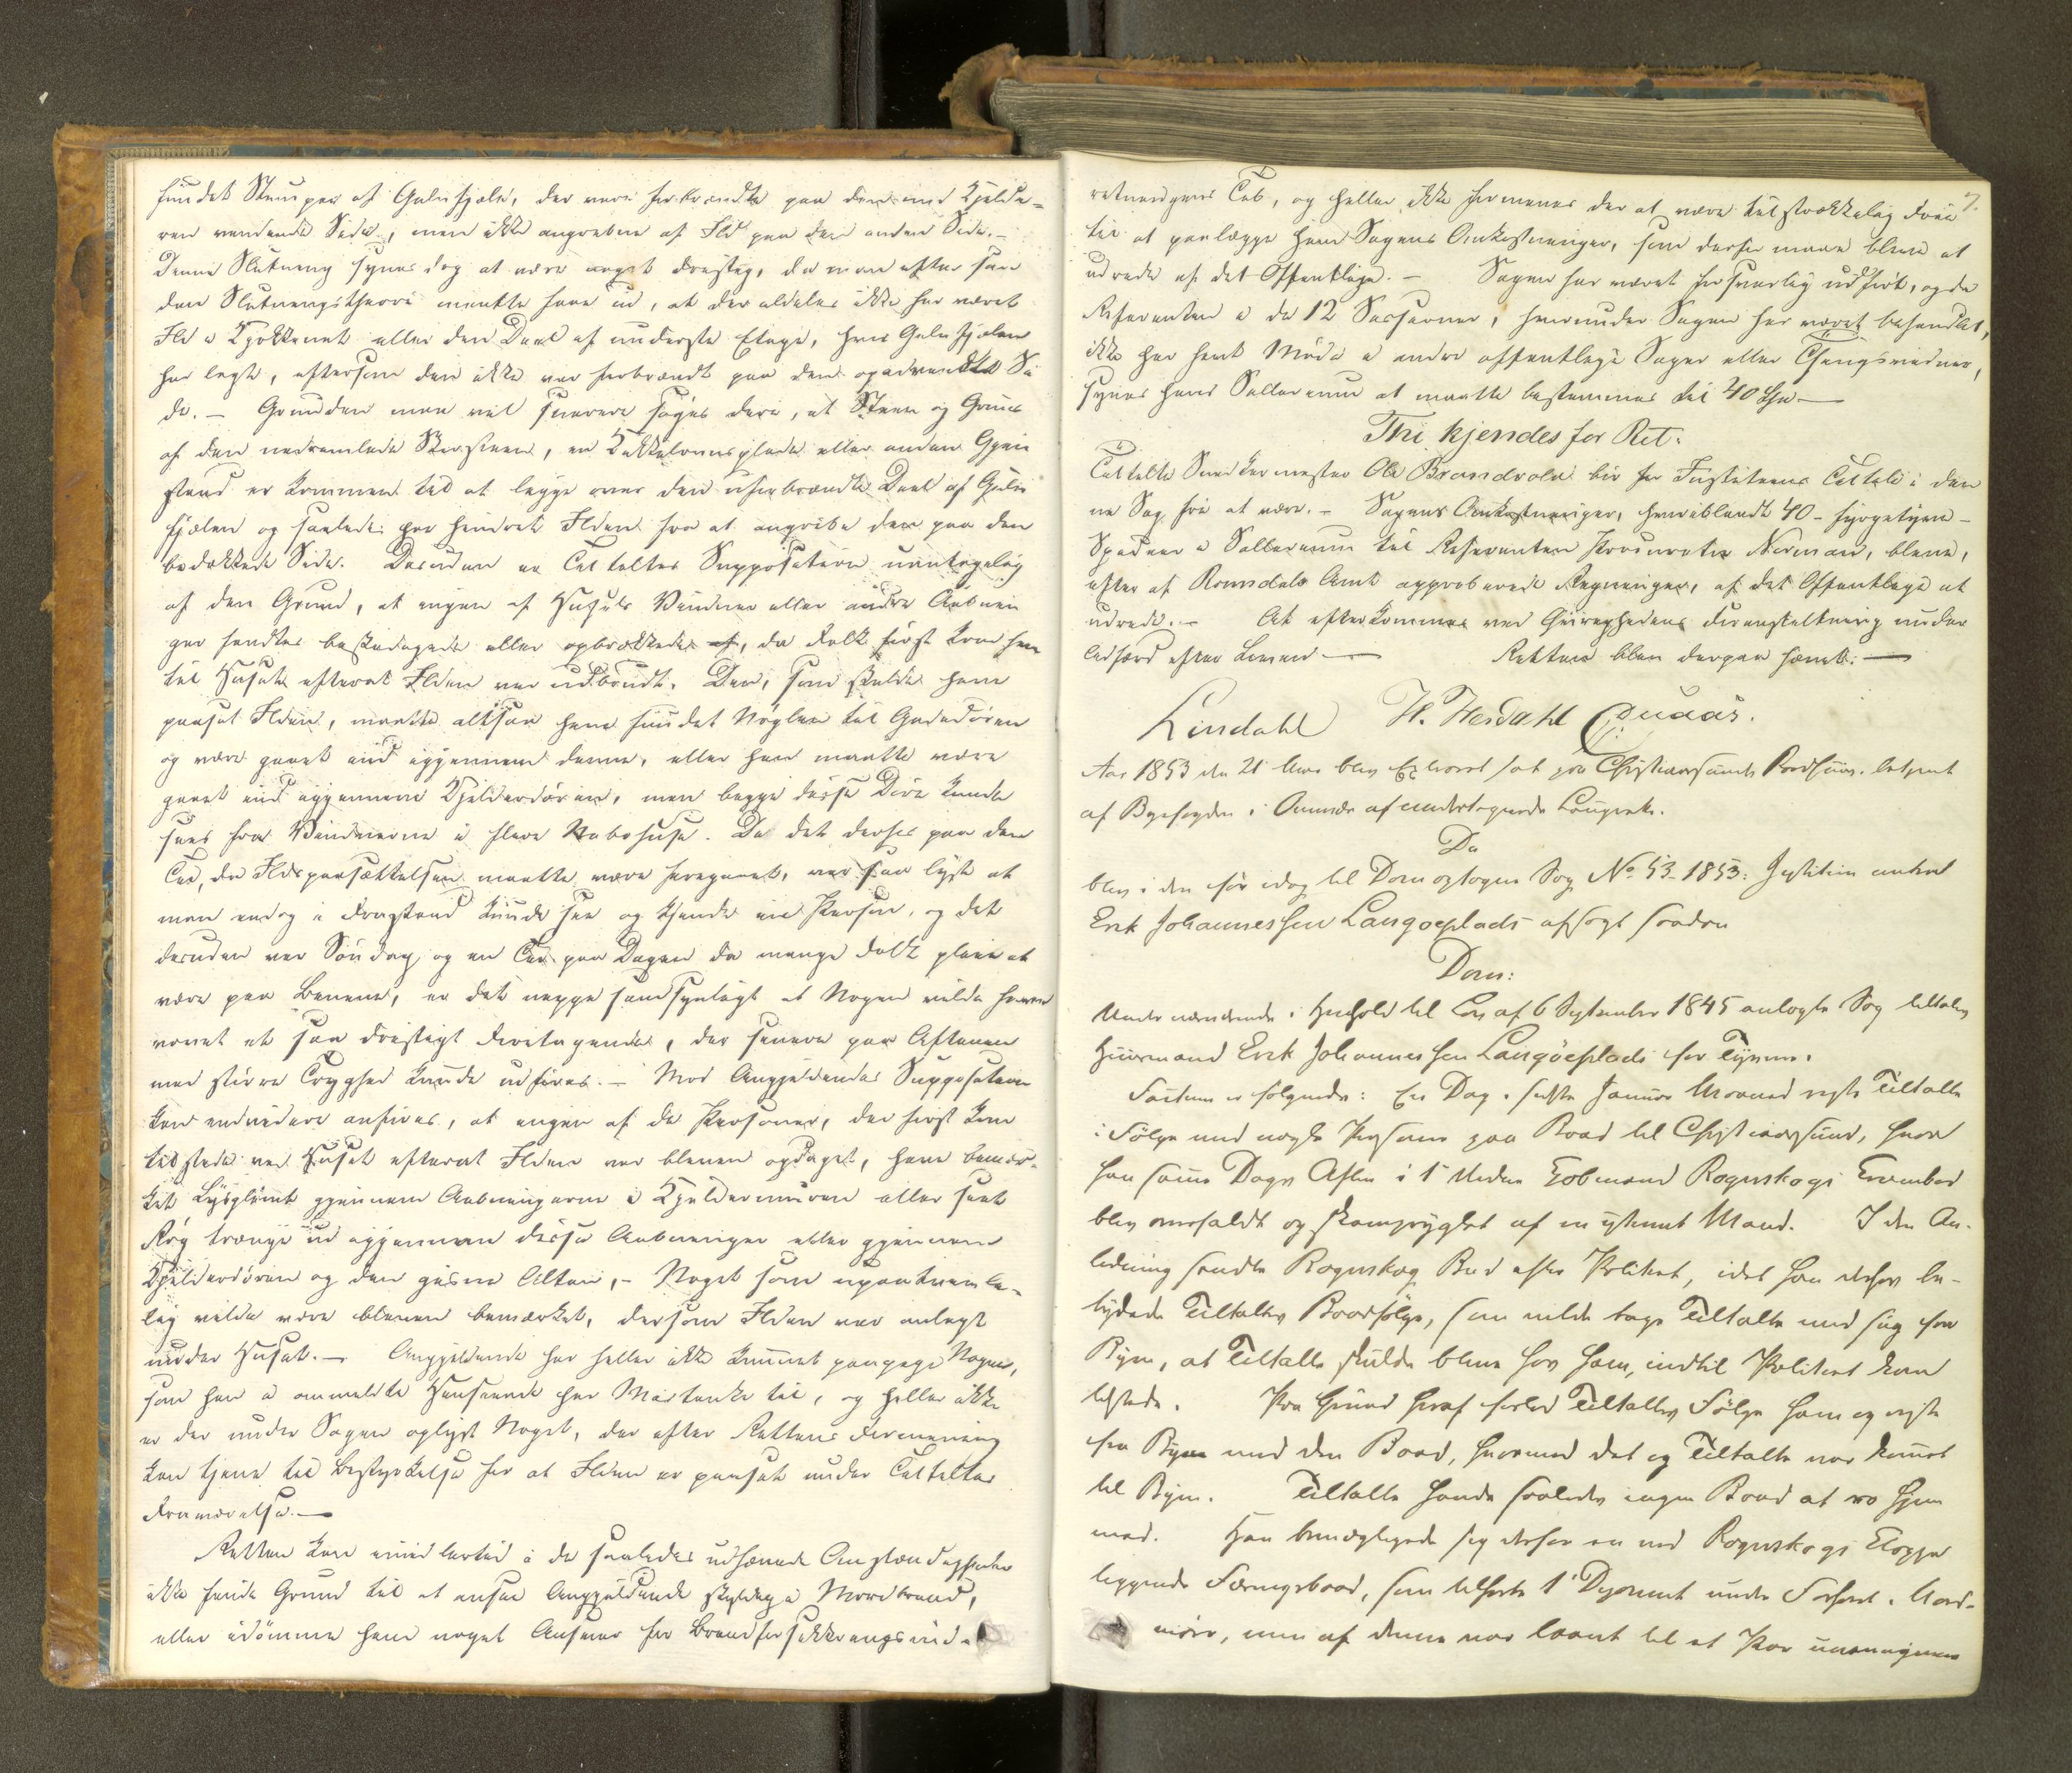 fundet Stumper af Gulvfjæle, der vare forbrændte paa den mod Kjelde-
ren vendende Side, men ikke angrebne af Ild paa den anden Side. –
Denne Slutning synes dog at være noget dristig, da man efter sam-
den Slutningstheori maatte sove ud, at der aldeles ikke har været
Ild i Kjøkkenet eller den Deel af underste Etage, hvis Gulvfjælene
har ligt, eftersom den ikke var forbrændt paa den opadvendte Si
de. – Grunden maa vel snarere søges deri, at Steen og Gruus
af den nedramlede Skorsteen, en Kakkelovnsplade eller anden Gjen
stand er kommen til at ligge over den uforbrændte Deel af Gulv
fjælen og saaledes har hindret Ilden fra at angribe den paa den
bedækkede Side. Desuden er Tiltaltes Supposition uantagelig
af den Grund, at ingen af Husets Vinduer eller andre Aabnin
ger fandtes beskadigede eller opbrækkede, da Folk først kom hen
til Huset efterat Ilden var udbrudt. Den, som skulde have
paasat Ilden, maatte altsaa have fundet Nøglen til Gadedøren
og være gaaet ind igjennem denne, eller han maatte være
gaaet ind igjennem Kjelderdøren, men begge disse Døre kunde
sees fra Vinduerne i flere Nabohuse. Da det derhos paa den
Tid, da Ildspaasættelsen maatte være foregaaet, var saa lyst at
man endog i Frastand kunde see og kjende en Person, og det
desuden var Søndag og en Tid paa Dagen da mange Folk pleie at
være paa Benene, er det neppe sandsynligt at Nogen vilde have
vovet et saa dristigt Foretagende, der senere paa Aftenen
med større Tryghed kunde udføres. – Mod Angjeldendes Supposition
kan endvidere anføres, at ingen af de Personer, der først kom
tilstede ved Huset efterat Ilden var bleven opdaget, have bemær-
ket Lysglimt gjennem Aabningerne i Kjeldermuren eller seet
Røg trænge ud igjennem disse Aabninger eller gjennem
Kjelderdøren og den gisne Altan, – Noget som upaatvivle-
lig vilde være bleven bemærket, dersom Ilden var anlagt
under Huset. – Angjeldende har heller ikke kunnet paapege Nogen,
som han i anmeldte Henseende har Mistanke til, og heller ikke
er der under Sagen oplyst Noget, der efter Rettens Formening
kan tjene til Bestyrkelse for at Ilden er paasat under Tiltaltes
Fraværelse. –
Retten kan imidlertid i de saaledes udhævede Omstændigheder
ikke finde Grund til at ansee Angjeldende skyldig i Mordbrand,
eller idømme ham noget Ansvar for Brandforsikkringsind-
7.
retningens Tab, og heller ikke formenes der at være tilstrækkelig Føie
til at paalægge ham Sagens Omkostninger, som derfor maae blive at
udrede af det Offentlige. – Sagen har været forsvarlig udført, og da
Referenten i de 12 Sessioner, hvorunder Sagen har været behandlet,
ikke har havt Møde i andre offentlige Sager eller Thingsvidner,
synes hans Sallarium at maatte bestemmes til 40 Spd –
Thi kjendes for Ret:
Tiltalte Snedkermester Ole Brandvold bør for Justitiens Tiltale i den
ne Sag fri at være. – Sagens Omkostninger, hvoriblandt 40 – fyrgetyve –
Speder i Sallarium til Referenten Procurator Norman, blive,
efter af Romsdals Amt approberede Regninger, af det Offentlige at
udrede. – At efterkommes ved Øvrighedens Foranstaltning under
Adfærd efter Loven – Retten blev derpaa hævet: –
Lindahl H. Herdahl Quaas.
Aar 1853 den 21 blev Extraret sat paa Christianssunds Raadhuus, betjent
af Byefogden i Overvær af undertegnede Laugrett.
Da
blev i den før idag til Dom optagne Sag No 53 – 1853: Justitien contra
Erik Johannessen Langøeplads afsagt saadan
Dom:
Under nærværende i Henhold til Lov af 6 September 1845 anlagte Sag tiltales
Huusmand Erik Johannessen Langøeplads for Tyveri.
Factum er følgende: En Dag i sidste Januar Maaned reiste Tiltalte
i Følge med nogle Personer paa Baad til Christianssund, hvor
han samme Dags Aften i Rognskogs
blev overfaldt og skampryglet af en ukjendt Mand. I den An-
ledning sendte Rognskog Bud efter Politiet, idet han derhos be-
tydede Tiltaltes Baadfølge, som vilde tage Tiltalte med sig fra
Byen, at Tiltalte skulde blive hos ham, indtil Politiet kom
tilstede. Paa Grund heraf forlod Tiltaltes Følge ham og reiste
fra Byen med den Baad, hvormed det og Tiltalte var kommet
til Byen. Tiltalte havde saaledes ingen Baad at roe hjem
med. Han bemægtigede sig derfor en ved Rognskogs
liggende Færingsbaad, som tilhørte i Nord-
møre, men af denne var laant til et Par unavngivne